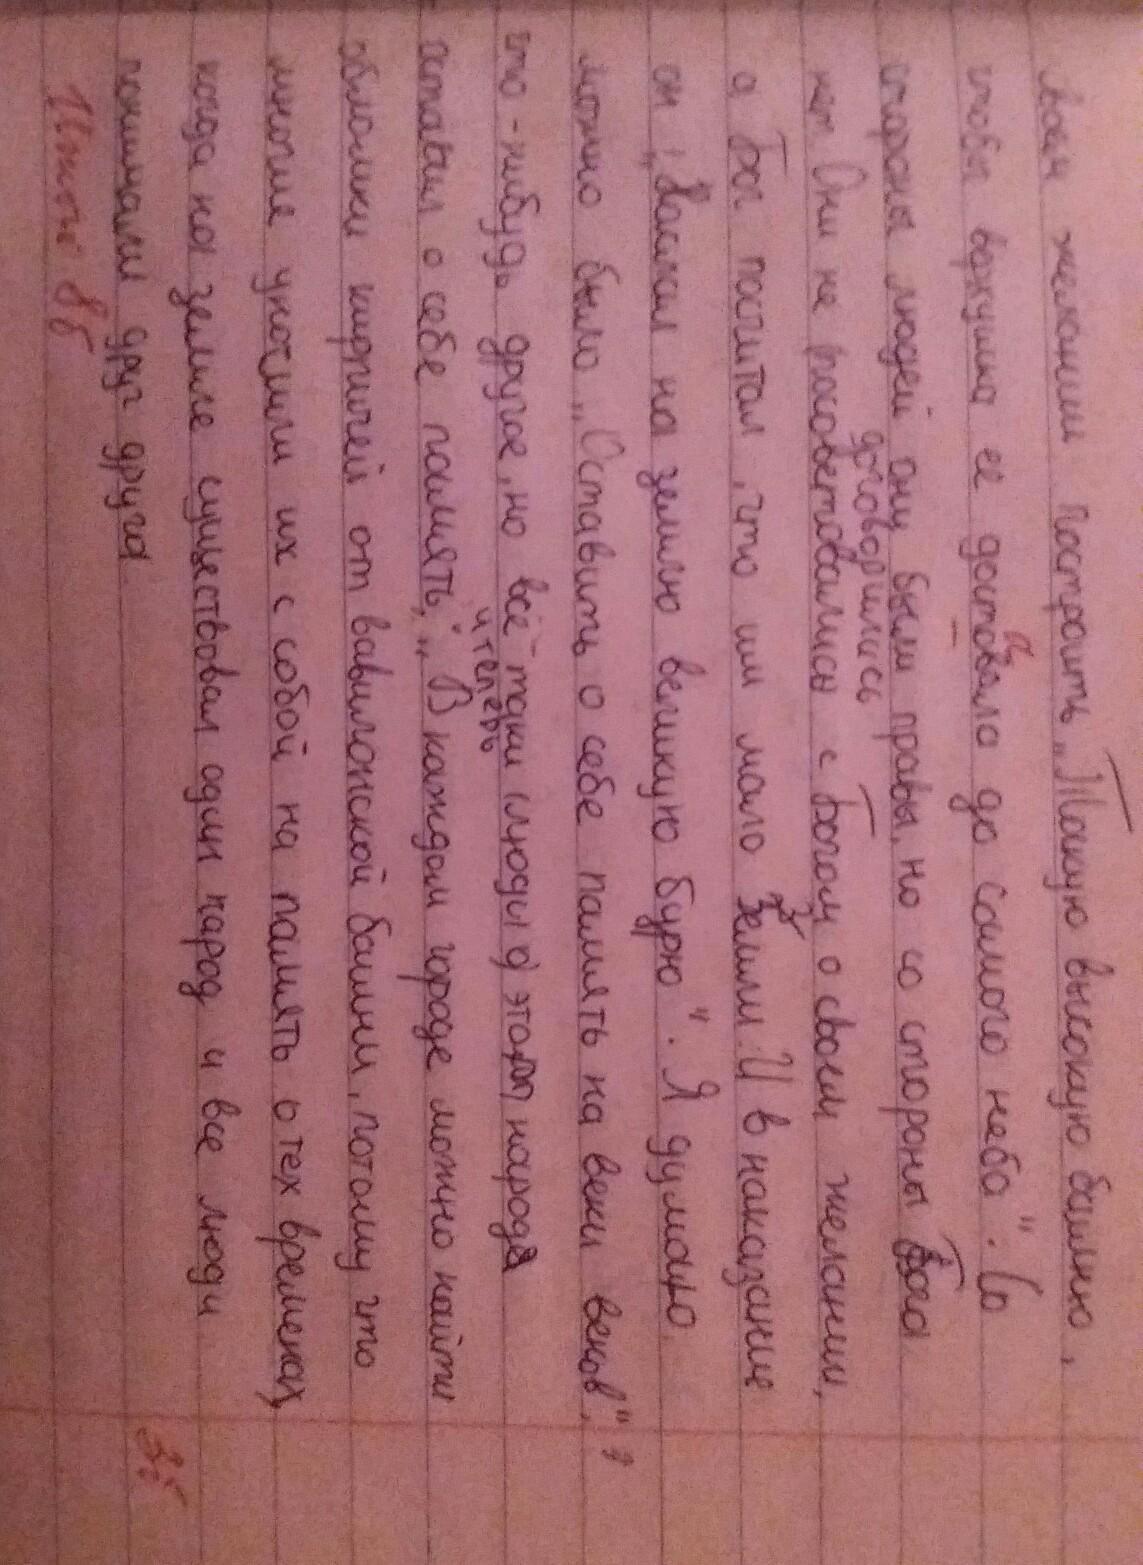 своем желании построить „Такую высокую башню,
чтобы вершина ее достовало до самого неба". Со
а
стороны людей они были правы, но со стороны Бога
договорились
нет Они не посоветовались с Богом о своем желании,
а Бог посчитал, что им мало земли И в наказание
он „Наслал на землю великую бурю". Я думаю
можно было „Оставить о себе память на веки веков",
что-нибудь другое, но всё таки (люди) этот народ
и теперь
оставил о себе память, „В каждом городе можно найти
обломки кирпичей от вавилонской башни, потому что
многие уносили их с собой на память о тех временах,
когда на земле существовал один народ и все люди
понимали друг друга
3б
Итог 8б